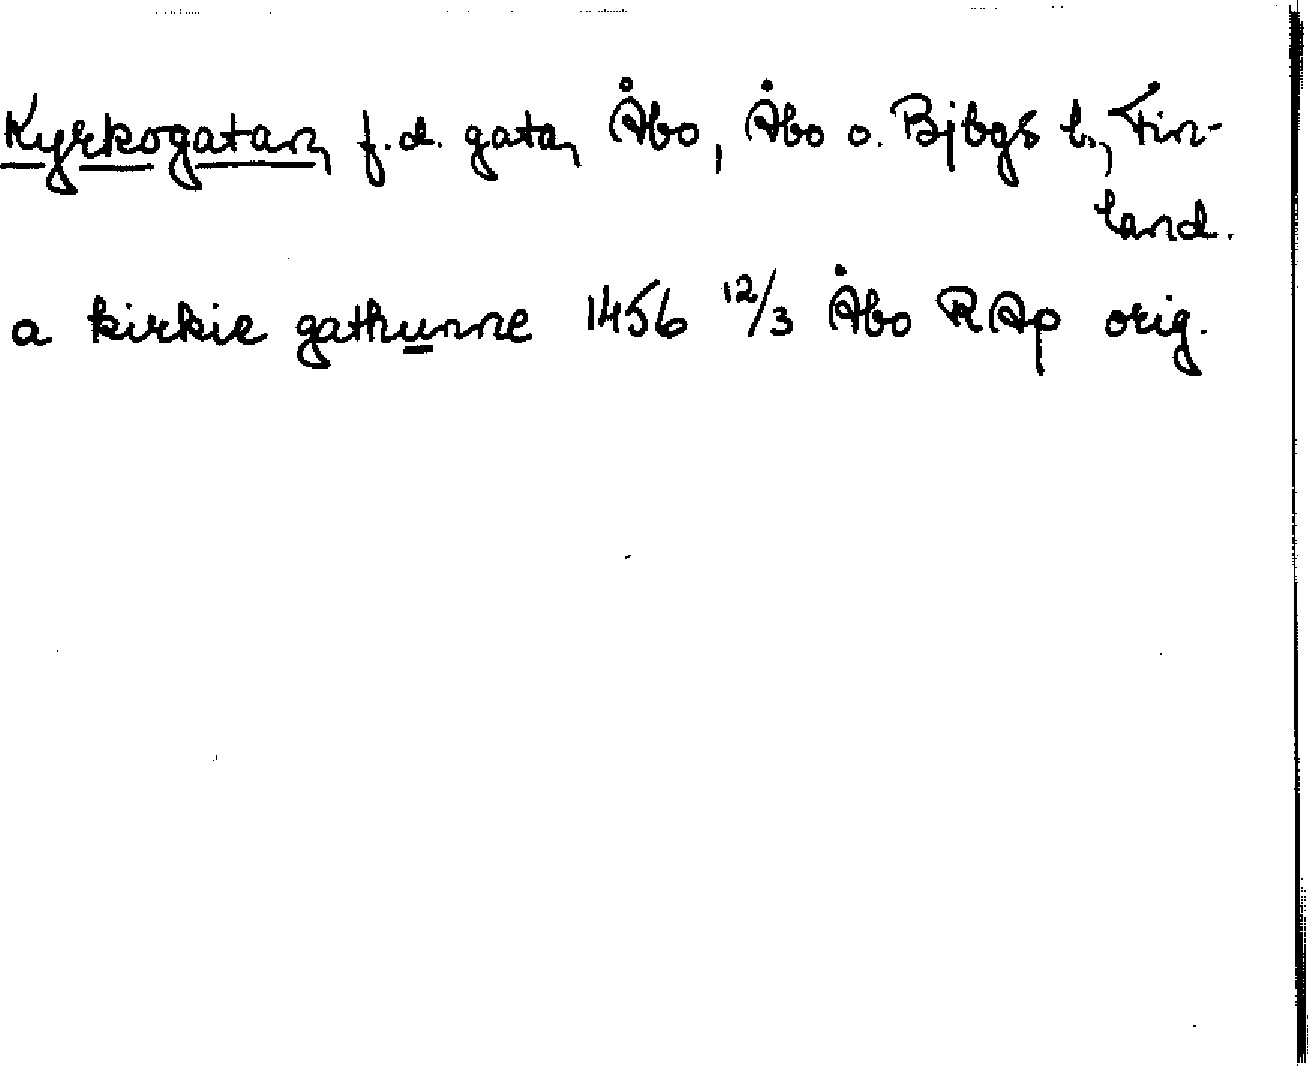 Kyrkogatan, f.d. gata, Åbo, Åbo o. Bjbgs l., Fin-
land.
a kirkie gathunne 1456 12/3 Åbo RAp orig.